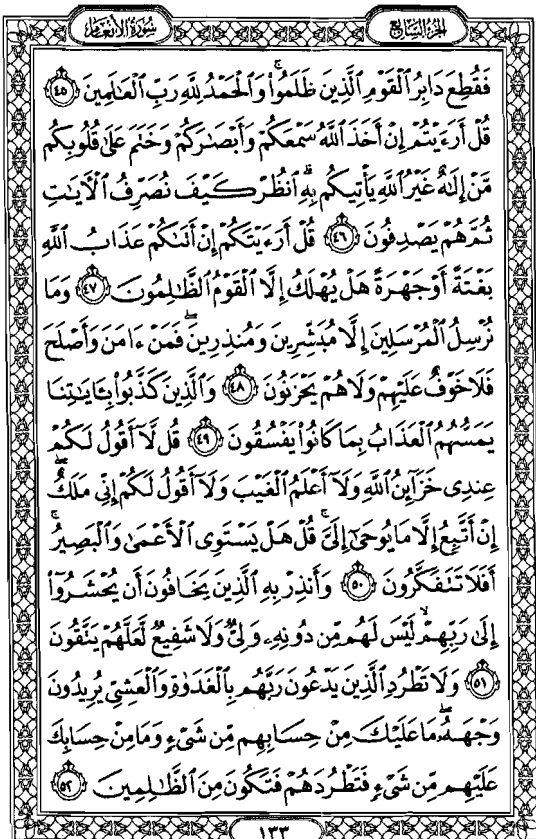 سُورَةُ الأَنْعَامِ
الجُزْءُ السَّابِعُ
فَقُطِعَ دَابِرُ ٱلْقَوْمِ ٱلَّذِينَ ظَلَمُوا۟ ۚ وَٱلْحَمْدُ لِلَّهِ رَبِّ ٱلْعَـٰلَمِينَ ٤٥
قُلْ أَرَءَيْتُمْ إِنْ أَخَذَ ٱللَّهُ سَمْعَكُمْ وَأَبْصَـٰرَكُمْ وَخَتَمَ عَلَىٰ قُلُوبِكُم
مَّنْ إِلَـٰهٌ غَيْرُ ٱللَّهِ يَأْتِيكُم بِهِ ۗ ٱنظُرْ كَيْفَ نُصَرِّفُ ٱلْـَٔايَـٰتِ
ثُمَّ هُمْ يَصْدِفُونَ ٤٦ قُلْ أَرَءَيْتَكُمْ إِنْ أَتَىٰكُمْ عَذَابُ ٱللَّهِ
بَغْتَةً أَوْ جَهْرَةً هَلْ يُهْلَكُ إِلَّا ٱلْقَوْمُ ٱلظَّـٰلِمُونَ ٤٧ وَمَا
نُرْسِلُ ٱلْمُرْسَلِينَ إِلَّا مُبَشِّرِينَ وَمُنذِرِينَ ۖ فَمَنْ ءَامَنَ وَأَصْلَحَ
فَلَا خَوْفٌ عَلَيْهِمْ وَلَا هُمْ يَحْزَنُونَ ٤٨ وَٱلَّذِينَ كَذَّبُوا۟ بِـَٔايَـٰتِنَا
يَمَسُّهُمُ ٱلْعَذَابُ بِمَا كَانُوا۟ يَفْسُقُونَ ٤٩ قُل لَّآ أَقُولُ لَكُمْ
عِندِى خَزَآئِنُ ٱللَّهِ وَلَآ أَعْلَمُ ٱلْغَيْبَ وَلَآ أَقُولُ لَكُمْ إِنِّى مَلَكٌ ۖ
إِنْ أَتَّبِعُ إِلَّا مَا يُوحَىٰٓ إِلَىَّ ۚ قُلْ هَلْ يَسْتَوِى ٱلْأَعْمَىٰ وَٱلْبَصِيرُ ۚ
أَفَلَا تَتَفَكَّرُونَ ٥٠ وَأَنذِرْ بِهِ ٱلَّذِينَ يَخَافُونَ أَن يُحْشَرُوٓا۟
إِلَىٰ رَبِّهِمْ ۙ لَيْسَ لَهُم مِّن دُونِهِۦ وَلِىٌّ وَلَا شَفِيعٌ لَّعَلَّهُمْ يَتَّقُونَ
٥١ وَلَا تَطْرُدِ ٱلَّذِينَ يَدْعُونَ رَبَّهُم بِٱلْغَدَوٰةِ وَٱلْعَشِىِّ يُرِيدُونَ
وَجْهَهُۥ ۖ مَا عَلَيْكَ مِنْ حِسَابِهِم مِّن شَىْءٍ وَمَا مِنْ حِسَابِكَ
عَلَيْهِم مِّن شَىْءٍ فَتَطْرُدَهُمْ فَتَكُونَ مِنَ ٱلظَّـٰلِمِينَ ٥٢
١٣٣